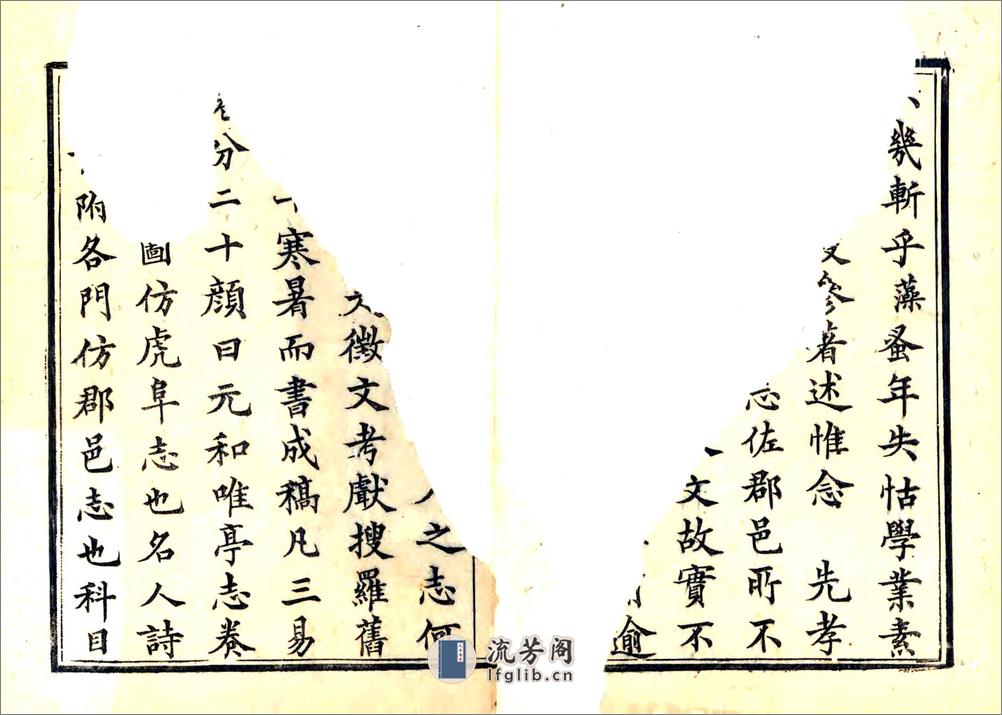 幾斬乎藻蚤年失怙學業素
參著述惟念 先孝
志佐郡邑所不
文故實不
逾
之志何
文徵文考獻搜羅舊
寒暑而書成稿凡三易
分二十顏曰元和唯亭志卷
圖仿虎阜志也名人詩
附各門仿郡邑志也科目
流芳阁
lfglib.cn